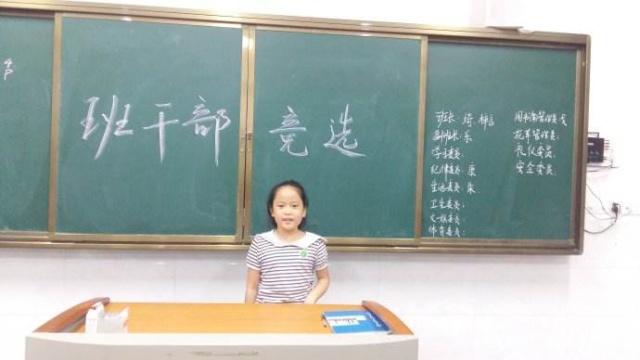 班干部 竞选
班长: 琦
副班长: 乐
学习委员:
纪律委员: 康
生活委员: 朱
卫生委员:
文娱委员:
体育委员:
图书管理员:
花草管理员:
礼仪委员:
安全委员: